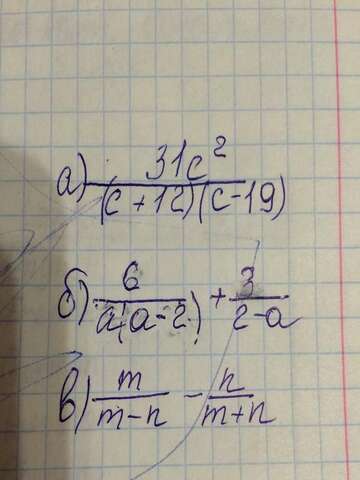 а) 31c²/((c+12)(c-19))
б) 6/(a(a-2)) + 3/(2-a)
в) m/(m-n) - n/(m+n)